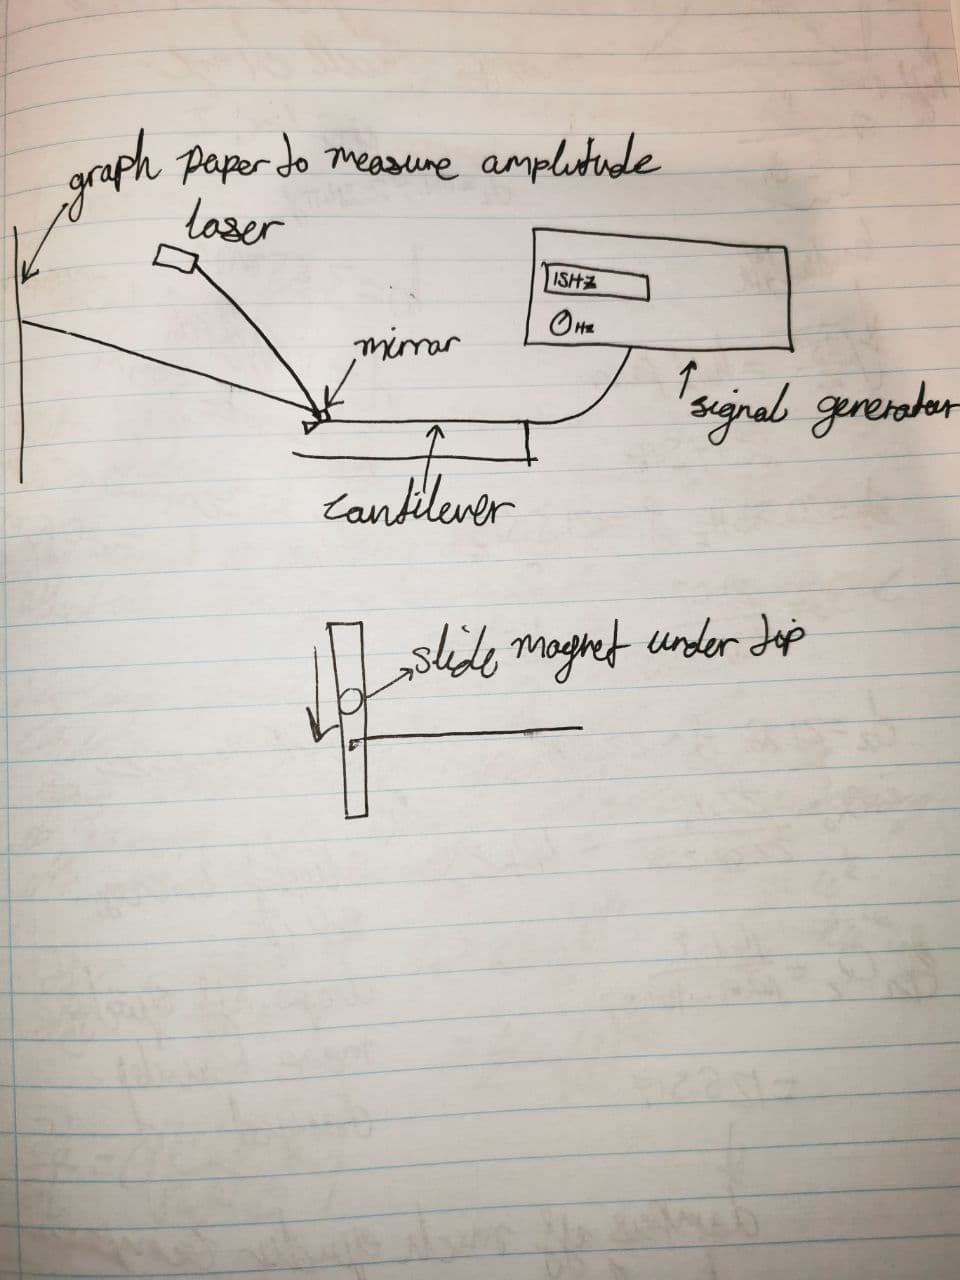 graph paper to measure amplitude
laser
15Hz
Hz
mirror
signal generator
cantilever
slide magnet under tip